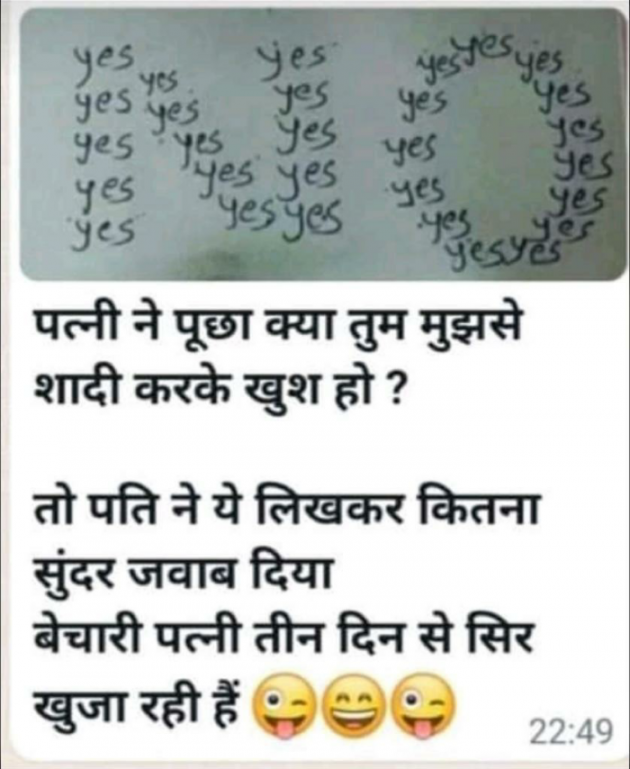 yes yes yes yes yes
yes yes yes yes
yes yes yes yes yes
yes yes yes yes yes
yes yes yes yes yes
yes yes yes yes yes
yes yes yes yes
yes yes
पत्नी ने पूछा क्या तुम मुझसे
शादी करके खुश हो ?
तो पति ने ये लिखकर कितना
सुंदर जवाब दिया
बेचारी पत्नी तीन दिन से सिर
खुजा रही हैं 😜😄😜
22:49